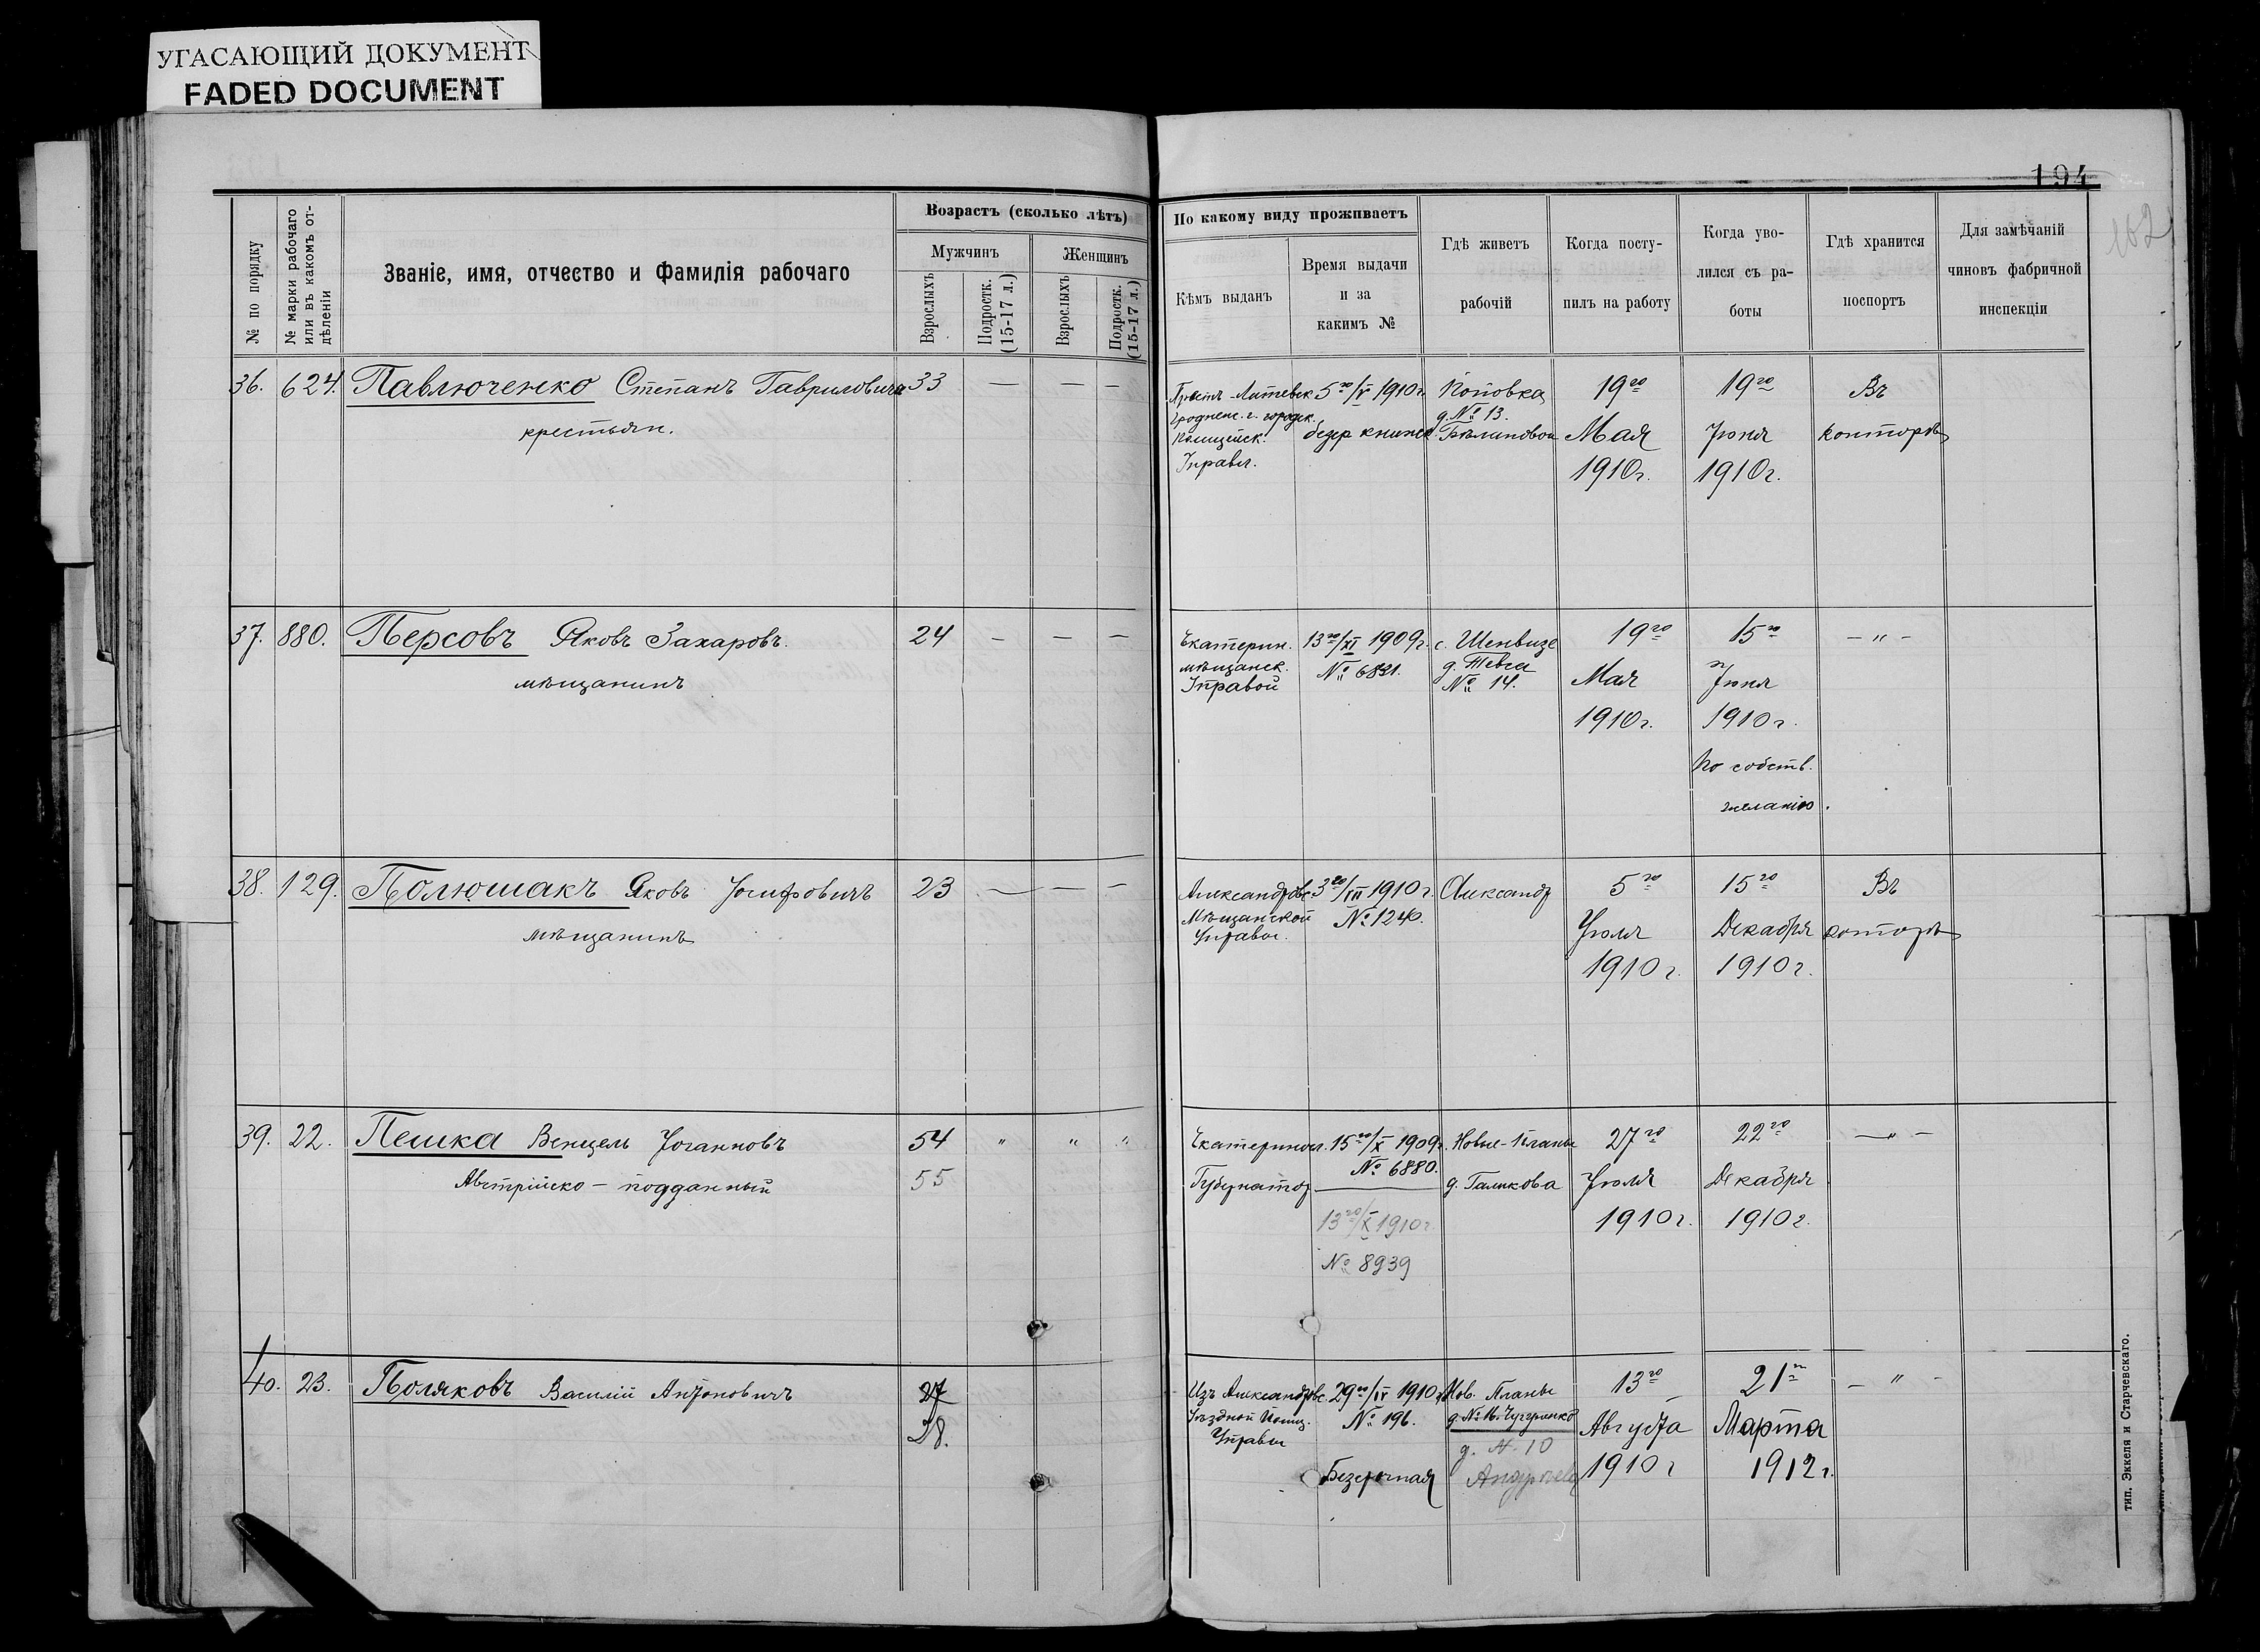 УГАСАЮЩИЙ ДОКУМЕНТ
FADED DOCUMENT
194
162
№ по порядку
№ марки рабочаго
или въ какомъ от-
дѣленіи
Званіе, имя, отчество и фамилія рабочаго
Возрастъ (сколько лѣтъ)
Мужчинъ
Женщинъ
Взрослыхъ
Подростк.
(15-17 л.)
Взрослыхъ
Подростк.
(15-17 л.)
По какому виду проживаетъ
Кѣмъ выданъ
Время выдачи
и за
какимъ №
Гдѣ живетъ
рабочій
Когда посту-
пилъ на работу
Когда уво-
лился съ ра-
боты
Гдѣ хранится
поспортъ
Для замѣчаній
чиновъ фабричной
инспекціи
36. 624. Павлюченко Степанъ Гавриловичъ 33 — — —
крестьян.
Брестъ-Литовск
Гроднен. г. городск.
Полицейск.
Управл.
5го/V 1910г.
Поповка
д. № 13.
19го
Мая
1910г.
19го
Іюня
1910г.
Въ
конторѣ
37. 880. Персовъ Яковъ Захаровъ. 24 — — —
мѣщанинъ
Екатерин.
мѣщанск.
Управой
13го/XI 1909г.
№ 6821.
с. Шенвизе
д. Тевса
№ 14.
19го
Мая
1910г.
15го
Іюня
1910г.
По собств.
желанію.
— " —
38. 129. Полюшакъ Яковъ Іосифовичъ 23 — — —
мѣщанинъ
Александровс.
Мѣщанской
Управы.
3го/VII 1910г.
№ 1240.
Александр
5го
Іюля
1910г.
15го
Декабря
1910г.
Въ
конторѣ
39. 22. Пешка Венцель Іоганновъ 54 " " "
Австрійско-подданный 55
Екатериносл.
Губернатор
15го/X 1909г.
№ 6880.
13го/X 1910г.
№ 8939
Новые-Планы
д. Галикова
27го
Іюля
1910г.
22го
Декабря
1910г.
— " —
40. 23. Поляковъ Василій Антоновичъ 27
28.
Изъ Александровс.
Уѣздной Полиц.
Управы
29го/IV 1910г.
№ 196.
Безсрочная
Нов. Планы
д. № 10
13го
Августа
1910г
21го
Марта
1912г.
— " —
тип. Эккеля и Старчевскаго.